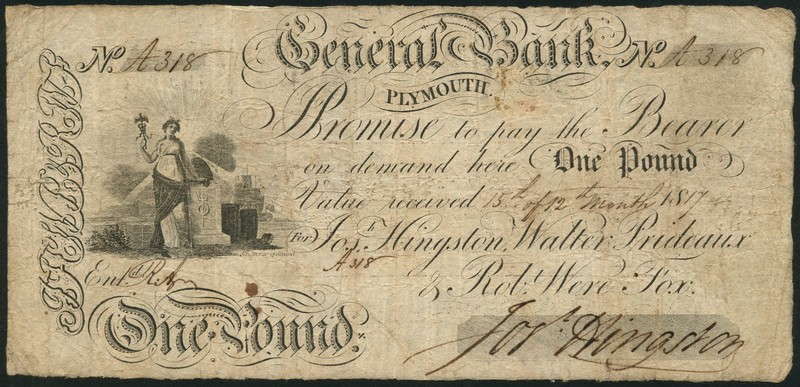 General Bank.
No. A 318 No. A 318
PLYMOUTH.
Promise to pay the Bearer
on demand here One Pound
Value received 15th of 12th Month 1817
For Jos.h Hingston, Walter Prideaux
A 318
& Robt. Were Fox.
Entd.
One Pound.
Josh Hingston